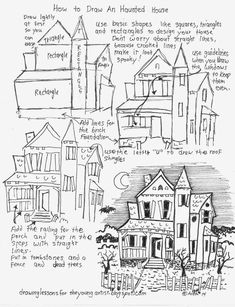 How to Draw An Haunted House
Draw lightly
at first so
you can
erase
Triangle
Rectangle
Rectangle
Rectangle
use basic shapes like squares, triangles
and rectangles to design your House
Don't worry about straight lines,
because crooked lines
make it look
spooky!
use guidelines
when you draw
the windows
to keep
them
even.
Add lines for
the brick
Foundation.
use the letter "u" to draw the roof
Shingles
Add the railing for the
porch and put in the
steps with straight
lines.
Put in tombstones and a
fence and dead trees
drawinglessonsfortheyoungartist.blogspot.com